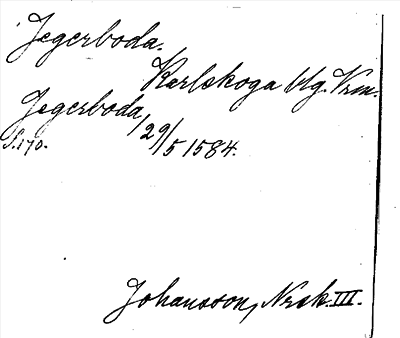 Jegerboda.
Karlskoga blg. Vrm.
Jegerboda, 29/5 1584.
S. 170.
Johansson, Nrsk. III.